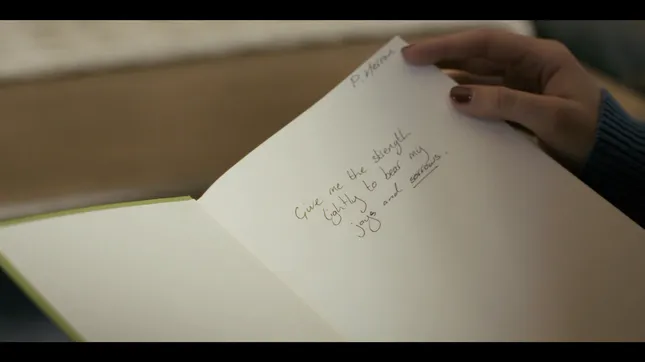 Give me the strength
lightly to bear my
joys and sorrows.